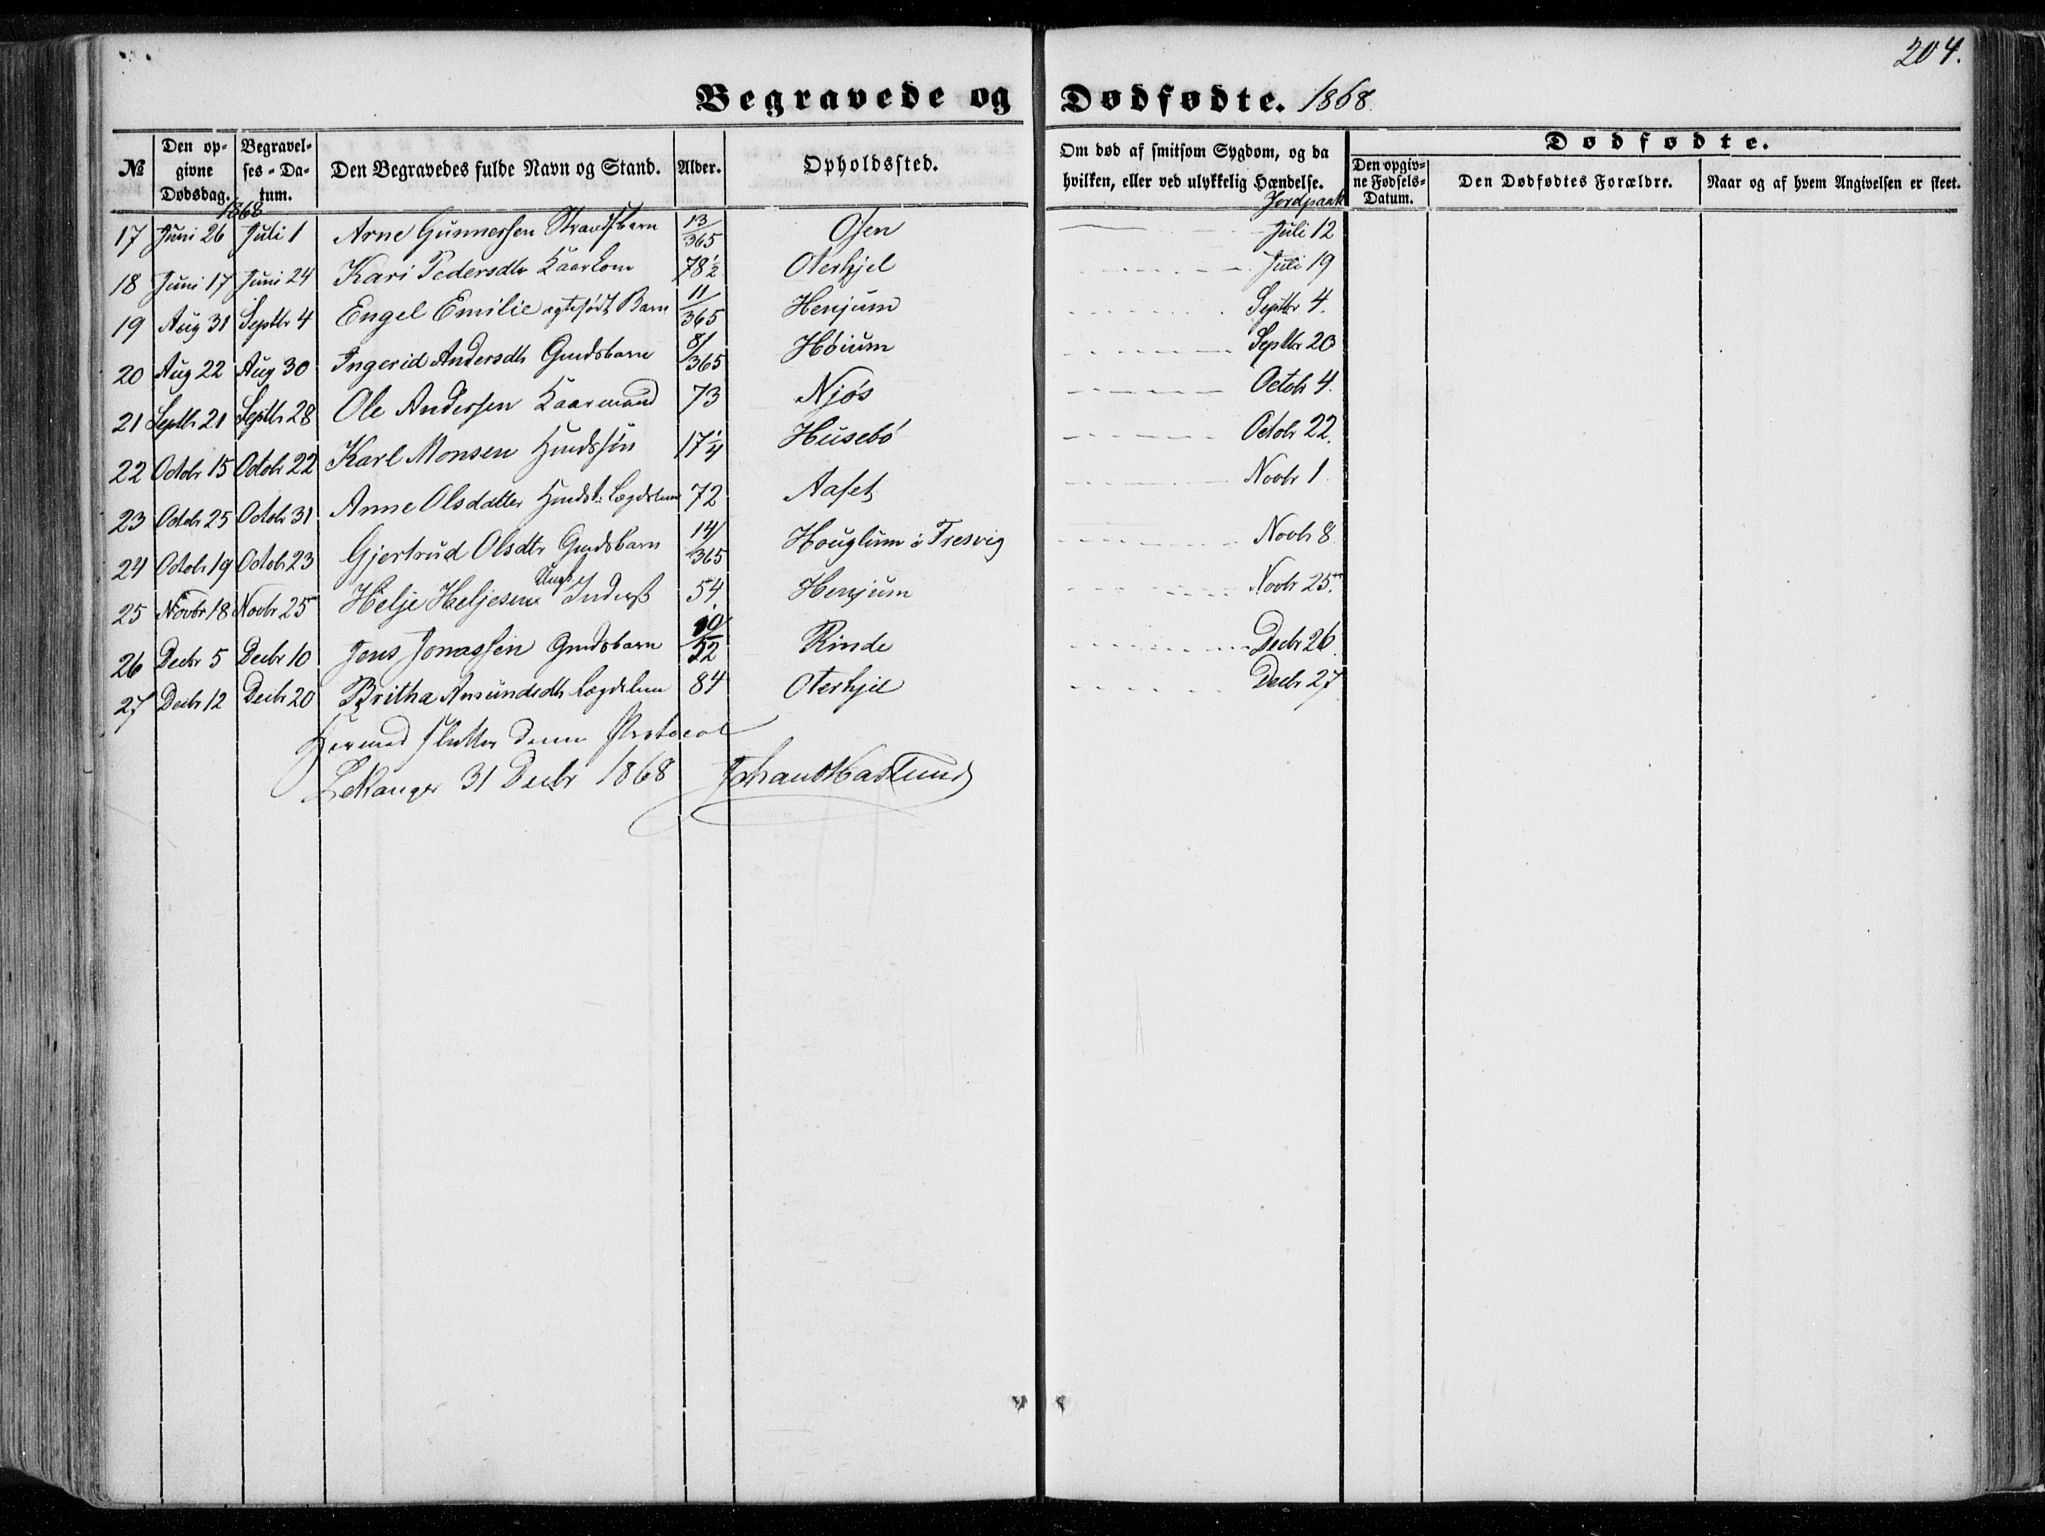 204.
Begravede og Dødfødte. 1868.
№ Den opgivne Dødsdag. Begravelses-Datum. Den Begravedes fulde Navn og Stand. Alder. Opholdssted. Om død af smitsom Sygdom, og da hvilken, eller ved ulykkelig Hændelse. Dødfødte. Den opgivne Fødsels-Datum. Den Dødfødtes Forældre. Naar og af hvem Angivelsen er skeet.
1868 Jordpaak
17 Juni 26 Juli 1 Arne Gunnersen Strandsbarn 13/365 Osen Juli 12
18 Juni 17 Juni 24 Kari Pedersdtr Kaarkone 78 1/2 Oterhjel Juli 19
19 Aug 31 Septbr 4 Engel Emilie egtefødt Barn 11/365 Henjum Septbr 4.
20 Aug 22 Aug 30 Ingerid Andersdtr Gmdsbarn 8/365 Høium Septbr 20
21 Septbr 21 Septbr 28 Ole Andersen Kaarmand 73 Njøs Octobr 4.
22 Octobr 15 Octobr 22 Karl Monsen Hmdssøn 17 1/4 Husebø Octobr 22.
23 Octobr 25 Octobr 31 Anne Olsdatter Lægdslem 72 Aafet Novbr 1
24 Octobr 19 Octobr 23 Gjertrud Olsdtr Gmdsbarn 14/365 Houglum i Fresvig Novbr 8
25 Novbr 18 Novbr 25 Helje Heljesen Ungk Inderst 54 Henjum Novbr 25.
26 Decbr 5 Decbr 10 Jens Jonassen Gmdsbarn 10/52 Rinde Decbr 26
27 Decbr 12 Decbr 20 Britha Amundsdtr Lægdslem 84 Oterhjel Decbr 27
Hermed slutter denne Protocol
Lekanger 31 Decbr 1868 Haslund